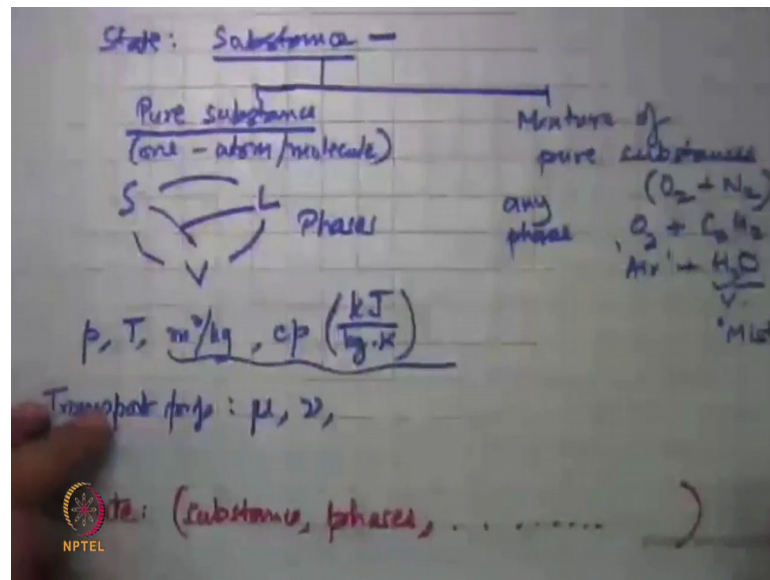 State: Substance —
Pure substance
(one - atom/molecule)
S L Phases
V
Mixture of
pure substances
(O₂ + N₂)
any
phase
O₂ + C₂H₂
'Air' + H₂O
V.
"Mist
p, T, m³/kg, cp (kJ/kg·K)
Transport prop: μ, ν,
te: (substance, phases, . . . . . . . . )
NPTEL